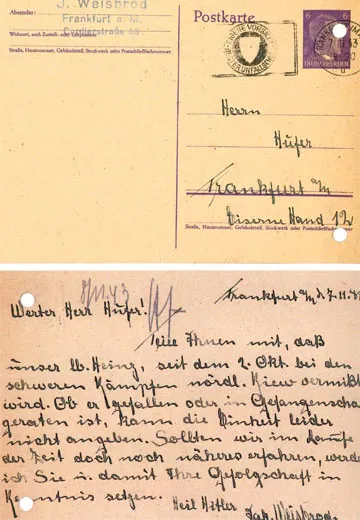 Absender:
J. Weisbrod
Frankfurt a. M.
Cordierstraße 55
Wohnort, auch Zustell- oder Leitpostamt
Straße, Hausnummer, Gebäudeteil, Stockwerk oder Postschließfachnummer
Postkarte
6
6
DEUTSCHES REICH
Herrn
Hüfer
Frankfurt a/M
Eiserne Hand 12
Straße, Hausnummer, Gebäudeteil, Stockwerk oder Postschließfachnummer
8/11.43
Frankfurt a/M d. 7.11.43
Werter Herr Hüfer!
Teile Ihnen mit, daß
unser lb. Heinz, seit dem 2. Okt. bei den
schweren Kämpfen nördl. Kiew vermißt
wird. Ob er gefallen oder in Gefangenscha
geraten ist, kann die Einheit leider
nicht angeben. Sollten wir im Laufe
der Zeit doch noch näheres erfahren, werde
ich Sie u. damit Ihre Gefolgschaft in
Kenntnis setzen.
Heil Hitler
Jak. Weisbrod